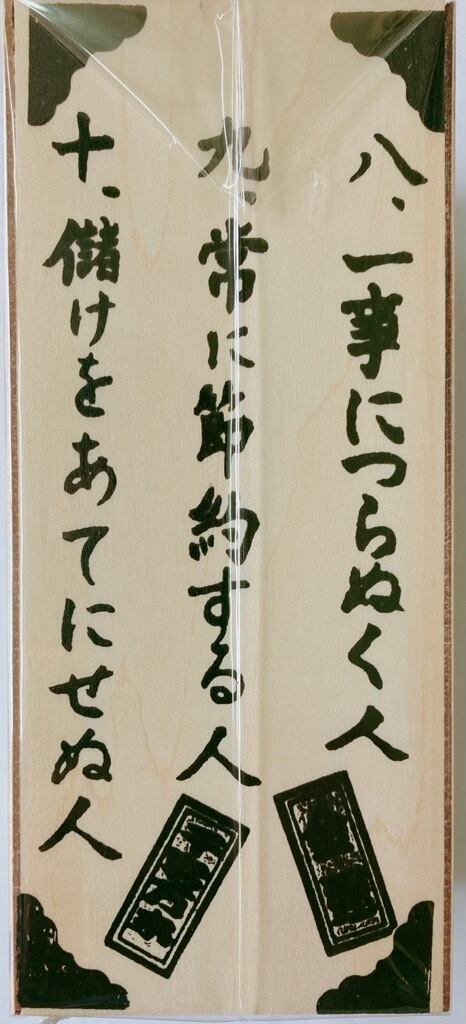 八、一事につらぬく人
九、常に節約する人
十、儲けをあてにせぬ人